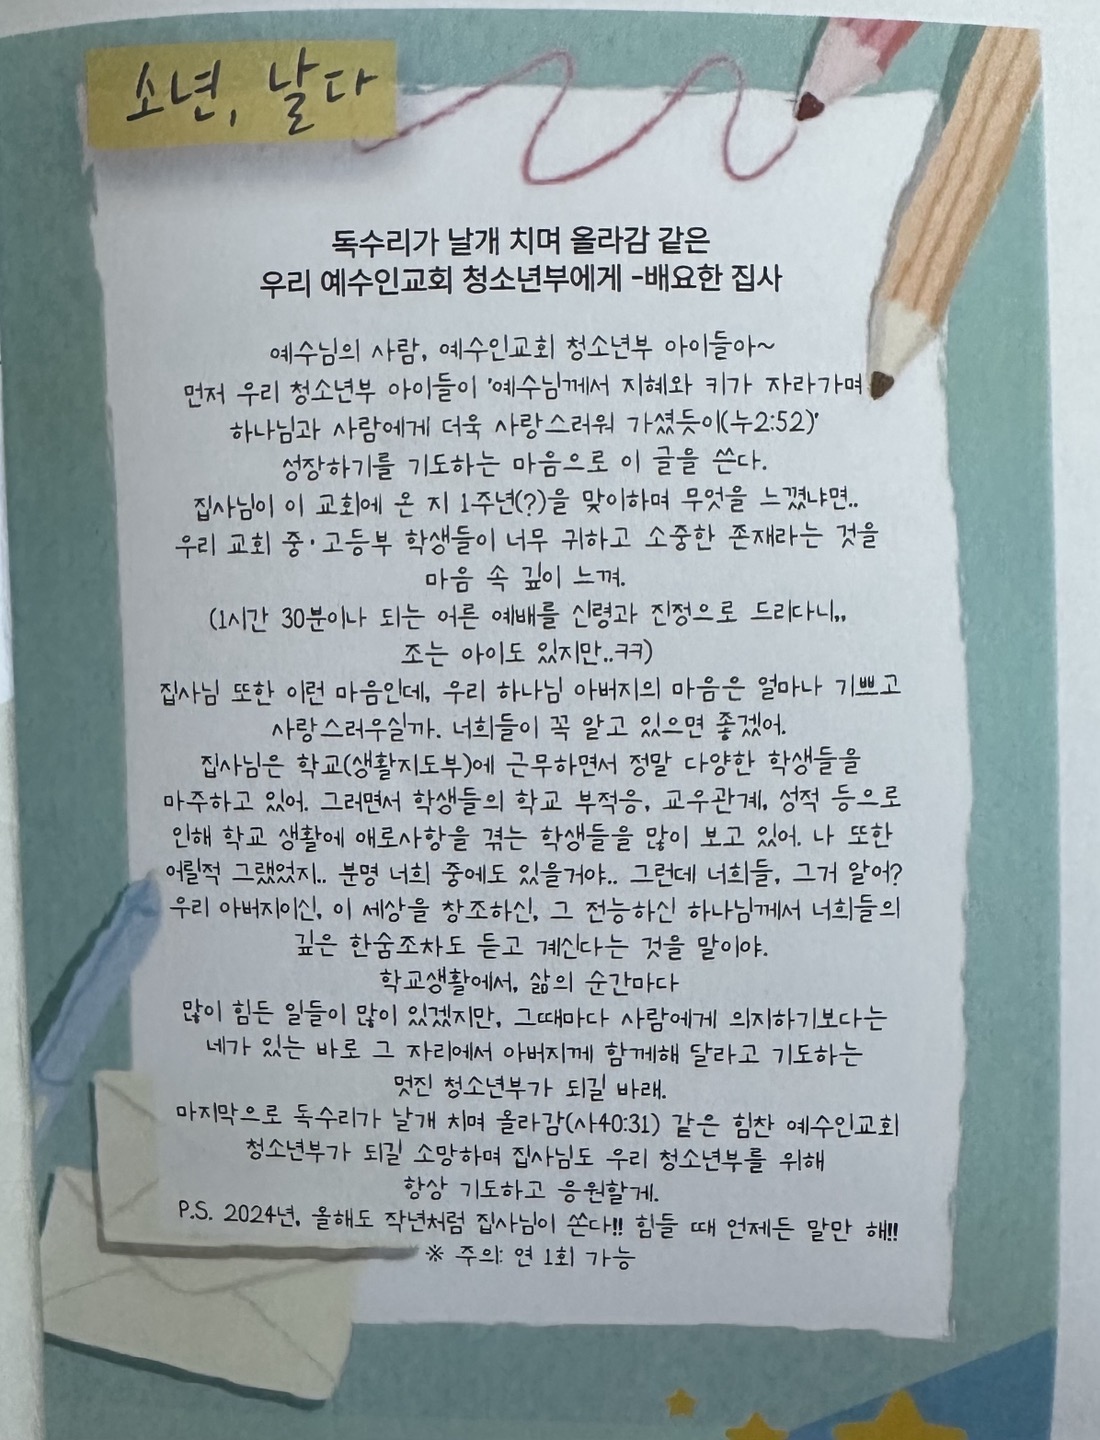 소년, 날다
독수리가 날개 치며 올라감 같은
우리 예수인교회 청소년부에게 -배요한 집사
예수님의 사람, 예수인교회 청소년부 아이들아~
먼저 우리 청소년부 아이들이 '예수님께서 지혜와 키가 자라가며
하나님과 사람에게 더욱 사랑스러워 가셨듯이(눅2:52)'
성장하기를 기도하는 마음으로 이 글을 쓴다.
집사님이 이 교회에 온 지 1주년(?)을 맞이하며 무엇을 느꼈냐면..
우리 교회 중·고등부 학생들이 너무 귀하고 소중한 존재라는 것을
마음 속 깊이 느껴.
(1시간 30분이나 되는 어른 예배를 신령과 진정으로 드리다니,,
조는 아이도 있지만..ㅋㅋ)
집사님 또한 이런 마음인데, 우리 하나님 아버지의 마음은 얼마나 기쁘고
사랑스러우실까. 너희들이 꼭 알고 있으면 좋겠어.
집사님은 학교(생활지도부)에 근무하면서 정말 다양한 학생들을
마주하고 있어. 그러면서 학생들의 학교 부적응, 교우관계, 성적 등으로
인해 학교 생활에 애로사항을 겪는 학생들을 많이 보고 있어. 나 또한
어릴적 그랬었지.. 분명 너희 중에도 있을거야.. 그런데 너희들, 그거 알어?
우리 아버지이신, 이 세상을 창조하신, 그 전능하신 하나님께서 너희들의
깊은 한숨조차도 듣고 계신다는 것을 말이야.
학교생활에서, 삶의 순간마다
많이 힘든 일들이 많이 있겠지만, 그때마다 사람에게 의지하기보다는
네가 있는 바로 그 자리에서 아버지께 함께해 달라고 기도하는
멋진 청소년부가 되길 바래.
마지막으로 독수리가 날개 치며 올라감(사40:31) 같은 힘찬 예수인교회
청소년부가 되길 소망하며 집사님도 우리 청소년부를 위해
항상 기도하고 응원할게.
P.S. 2024년, 올해도 작년처럼 집사님이 쏜다!! 힘들 때 언제든 말만 해!!
※ 주의: 연 1회 가능